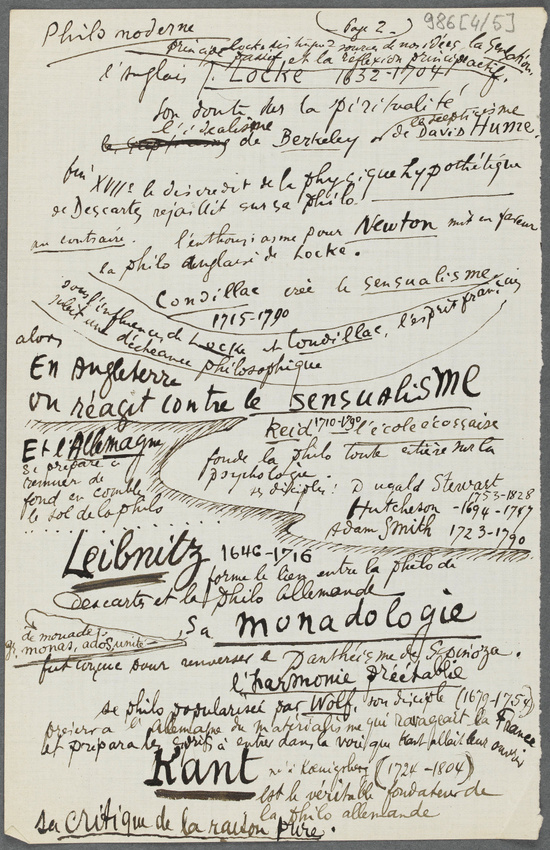 Philo moderne
(Page 2.)
986[4/5]
principe Locke distingue 2 sources de nos idées, la sensation,
passif, et la réflexion principe actif.
l'anglais J. Locke 1632-1704
son doute sur la spiritualité
l'idéalisme le scepticisme
de Berkeley de David Hume.
fin XVIIe le discrédit de la physique hypothétique
de Descartes rejaillit sur sa philo!
au contraire. l'enthousiasme pour Newton mit en faveur
la philo anglaise de Locke.
Condillac crée le sensualisme
1715-1790
sous l'influence de Locke et Condillac, l'esprit français
subit une déchéance philosophique
alors
En Angleterre
on réagit contre le sensualisme
Reid 1710-1790 l'école écossaise
fonde la philo toute entière sur la
psychologie.
ses disciples: Dugald Stewart
1753-1828
Hutcheson -1694-1747
Adam Smith 1723-1790
Et l'Allemagne
se prépare à
remuer de
fond en comble
le sol de la philo
Leibnitz 1646-1716
forme le lien entre la philo de
Descartes et la philo Allemande
de monade
gr. monas, ados, unité
Sa monadologie
fut conçue pour renverser le Panthéisme de Spinoza.
l'harmonie préétablie
se philo popularisée par Wolf, son disciple (1679-1754)
préserva l'Allemagne du matérialisme qui ravageait la France
et prépara les esprits à entrer dans la voie que Kant allait leur ouvrir
Kant né à Kœnigsberg (1724-1804)
est le véritable fondateur de
la philo allemande
sa critique de la raison pure.